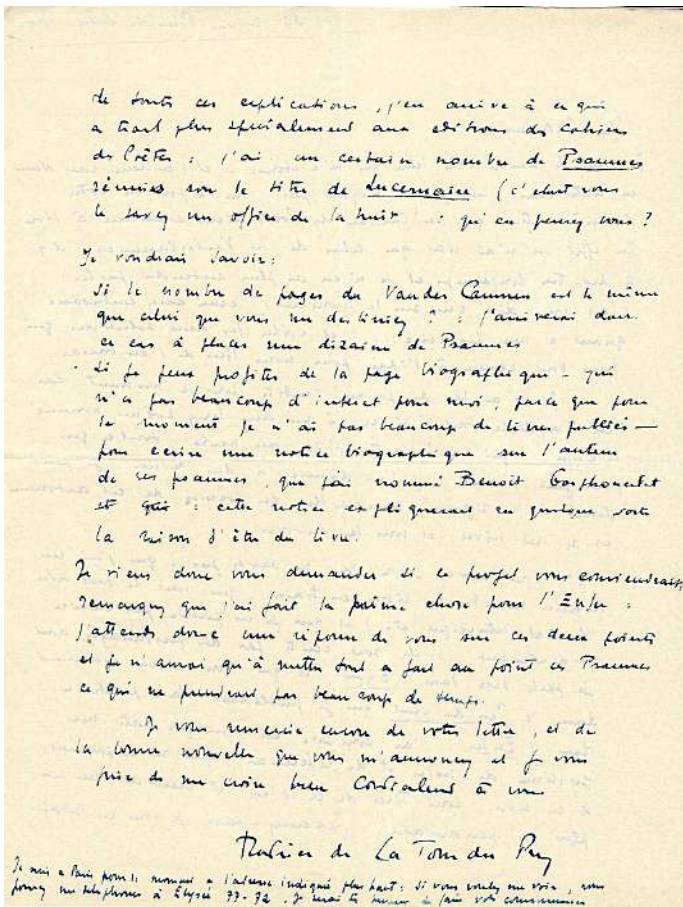 de toutes ces explications, j'en arrive à ce qui
a trait plus spécialement aux editions des cahiers
des Poêtes : j'ai un certain nombre de Psaumes
réunies sou le titre de Lucernaire (c'etait vous
le savez un office de la nuit : qu'en pensez vous ?
Je voudrais savoir:
Si le nombre de pages du Van des Cannes est le même
que celui que vous me destiniez ? : j'arriverai dans
ce cas à placer une dizaine de Psaumes
. Si je peux profiter de la page biographique - qui
n'a pas beaucoup d'interet pour moi, parce que pour
le moment je n'ai pas beaucoup de livres publiés -
pour ecrire une notice biographique sur l'auteur
de ses psaumes, que j'ai nommé Benoît
et : cette notice expliquerait en quelque sorte
la raison d'être du livre.
Je viens donc vous demander si ce projet vous conviendrait,
remarquez que j'ai fait la même chose pour l'Enfer :
J'attends donc une réponse de vous sur ces deux points
et je n'aurai qu'à mettre tout a fait au point ces Psaumes
ce qui ne prendrait pas beaucoup de temps.
Je vous remercie encore de votre lettre, et de
la bonne nouvelle que vous m'annoncez et je vous
prie de me croire bien Cordialement à vous
de La Tour du Pin
Je suis a Paris pour le moment a l'adresse indiquée plus haut : si vous voulez me voir, vous
pouvez me telephoner à Elysée 77-72. Je serai tr heureux de faire votre connaissance